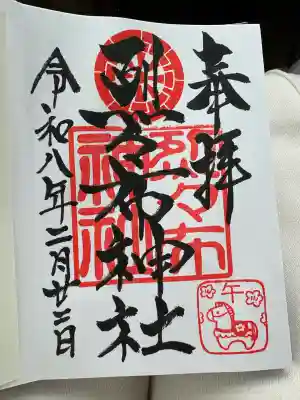 奉拝
烈々布神社
令和八年二月廿二日
烈々布
神社
午